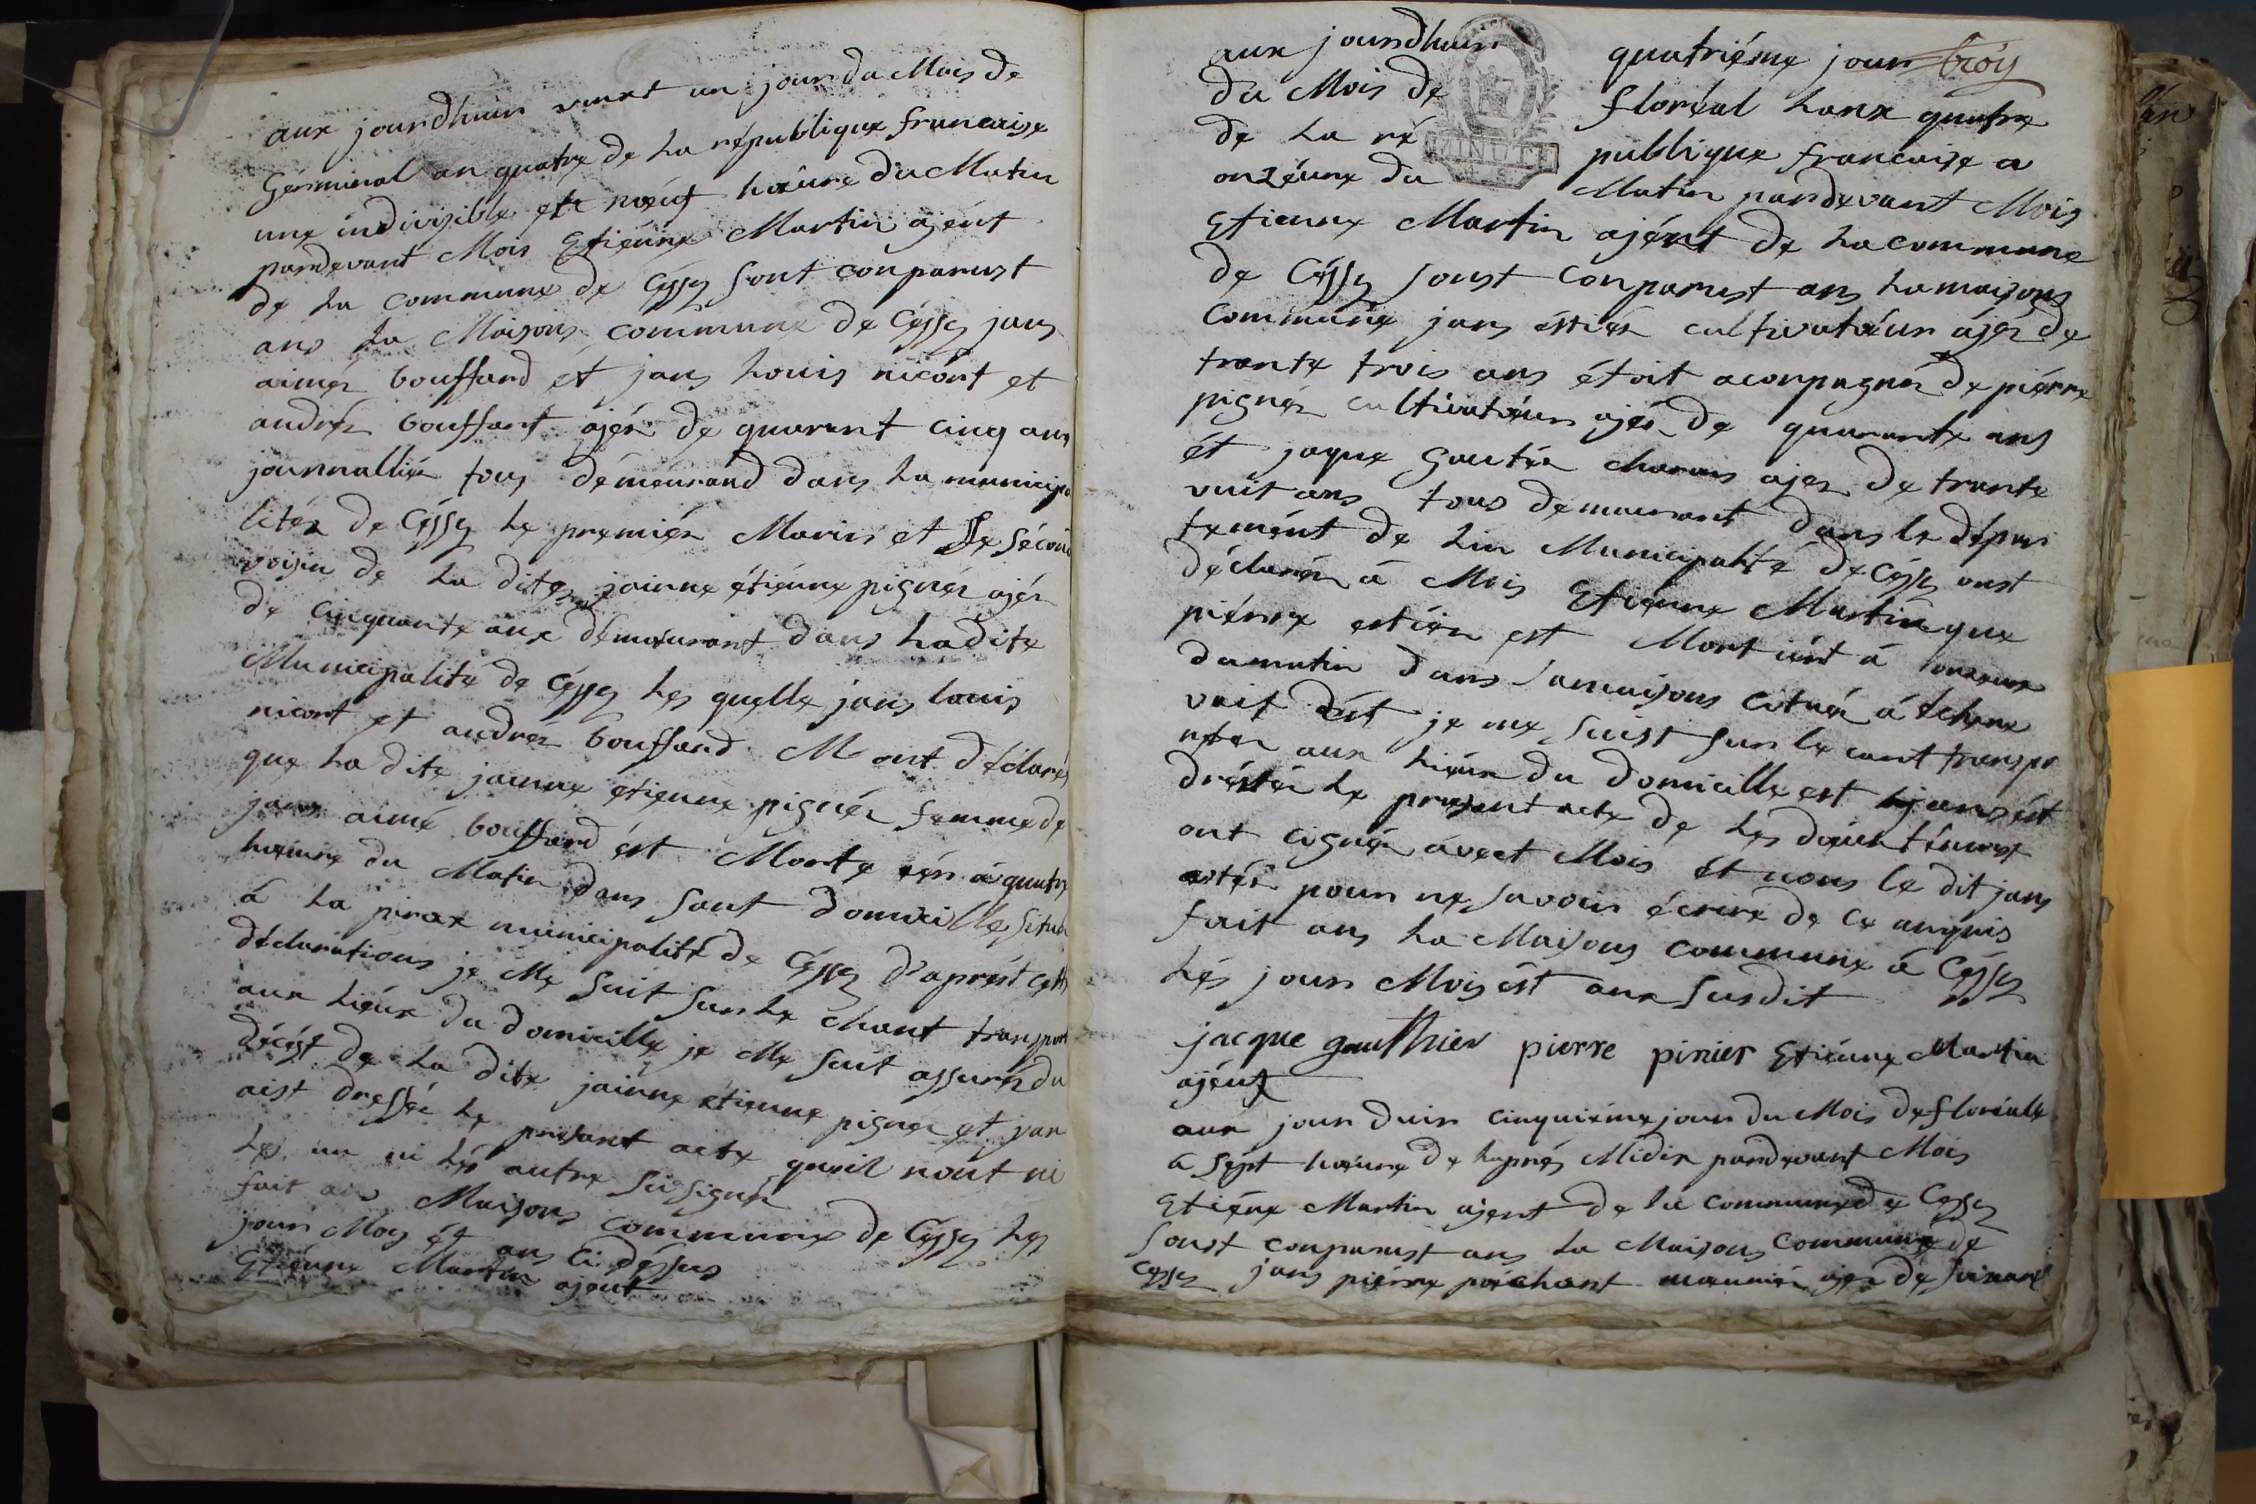 aux jourdhuin vinet un jour du Mois de
Gérminal an quatre de la république francaise
une indivizible et noeuf hoeure du Matin
pardevant Mois Etiénne Martin ajént
de la commune de Céssy sont conparust
ans la Maisons commune de Céssy jans
aimér bouffard et jans Louis nicont et
andrér bouffart ajér de quarent cinq ans
journalliér tous démeurand dans la municipa
litér de Céssy le premiér Maris et le sécond
voisin de la dite jainne étiénne pignér ajér
de cinquante ans démeurant dans la dite
Municipalité de Céssy les quelle jans louis
nicont et andrer bouffard M ont déclarér
que la dite jainne etienne pignér femme de
jans aimé bouffard ést Morte iér a quatre
hoeure du Matin dans sont domicille situé
á la municipalité de Céssy d'aprést cette
déclarations je Me suit sur le chant transport
aux liéux du domicille je Me suit assurér du
décést de la dite jainne étienne pignér et jan
aist dressér le présant acte quoil nont ni
les un ni lés autre si signér
fait ans Maisons commune de Céssy les
jour Moy ét ans ci déssus
Etiénne Martin ajent
aux jourdhuin quatriéme jour troy
du Mois de floréal lanx quatre
de la ré publique francaise a
onzéure du Matin pardevant Mois
MINUTE
Etienne Martin ajént de la commune
de Céssy sonst conparust ans la maisons
commune jans éstiér cultivatéur ajér de
trente trois ans étoit aconpagnér de piérre
pignér cultivatéur ajér de quarante ans
ét jaque Gautiér charons ajer de trente
vuit ans tous demeurant dans le dépar
temént de Municipalité de Céssy onst
déclarér á Mois Etiénne Martin que
piérre estiér est Mort iért á onzeure
du matin dans sa maisons cituér á
vait dést je me suist sur le cant transpor
ter aux liéux du domicille est ést
dréstér le présant acte de les deux témoust
ont cignér ávect Mois ét nous le dit jans
estér pour ne savoir écrire de ce anquis
fait ans la Maisons commune á Céssy
lés jour Mois ést anx susdit
jacque gauthier pierre pinier Etiénne Martin
ajént
aux jourduin cinquiéme jour du Mois de floréale
a sépt hoeure de laprés Midix pardevant Mois
Etiéne Martin ajent de la commune de Cessy
sonst conparust ans la Maisons commune de
Cessy jans piérre poichont meuniér ajer de soixant